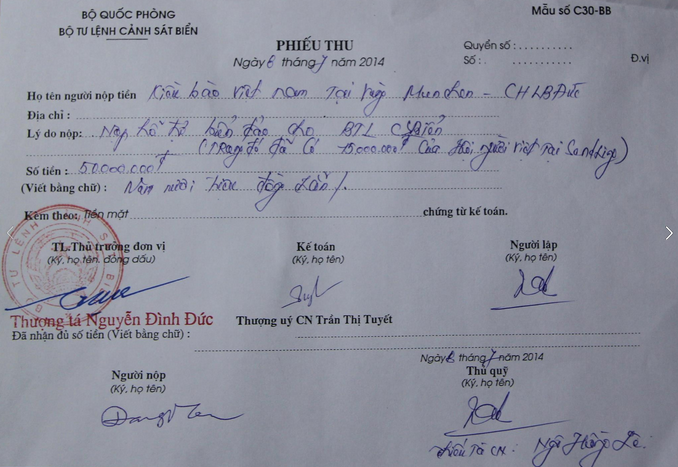 BỘ QUỐC PHÒNG
BỘ TƯ LỆNH CẢNH SÁT BIỂN
Mẫu số C30-BB
PHIẾU THU
Ngày 8 tháng 7 năm 2014
Quyển số : . . . . . . . . . .
Số : . . . . . . . . . . Đ.vị
Họ tên người nộp tiền Kiều bào Việt Nam Tại vùng Munchen - CHLB Đức
Địa chỉ :
Lý do nộp: Nộp hỗ trợ biển đảo cho BTL CSBiển
(Trong đó đã có 15.000.000đ Của Hội người Việt Tại )
Số tiền : 50.000.000đ
(Viết bằng chữ) : Năm mươi triệu đồng chẵn/.
Kèm theo: Tiền mặt chứng từ kế toán.
TL.Thủ trưởng đơn vị
(Ký, họ tên, đóng dấu)
Kế toán
(Ký, họ tên)
Người lập
(Ký, họ tên)
Thượng tá Nguyễn Đình Đức
Thượng uý CN Trần Thị Tuyết
Đã nhận đủ số tiền (Viết bằng chữ) :
Ngày 8 tháng 7 năm 2014
Người nộp
(Ký, họ tên)
Thủ quỹ
(Ký, họ tên)
Thiếu Tá CN: